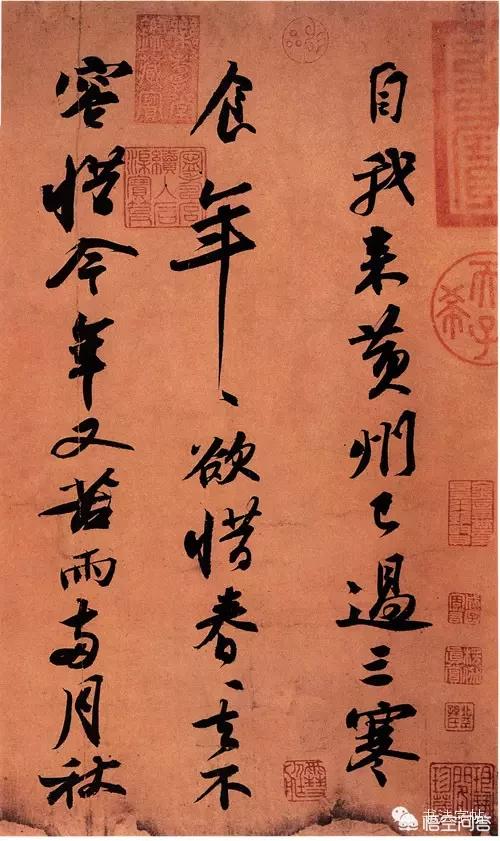 自我来黄州已過三寒
食年々欲惜春々去不
容惜今年又苦雨兩月秋
书法字帖
悟空问答